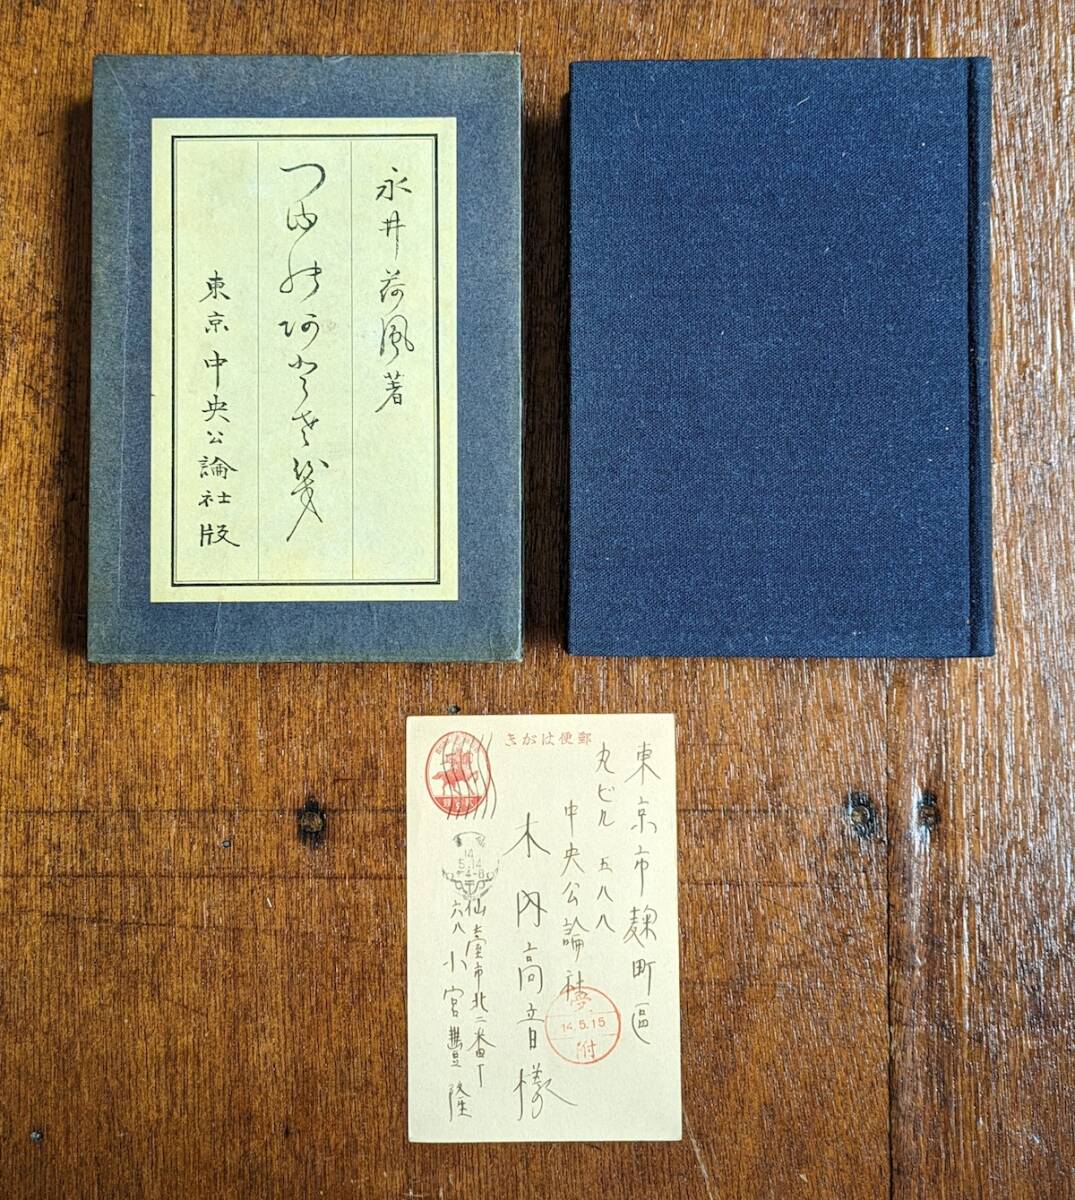 永井荷風著
つゆのあとさき
東京 中央公論社版
郵便はがき
東京市麹町區
丸ビル 五八八
中央公論社
木内高音様
仙臺市北二番丁
六八 小宮豊隆
14
5.14
14.5.15
附